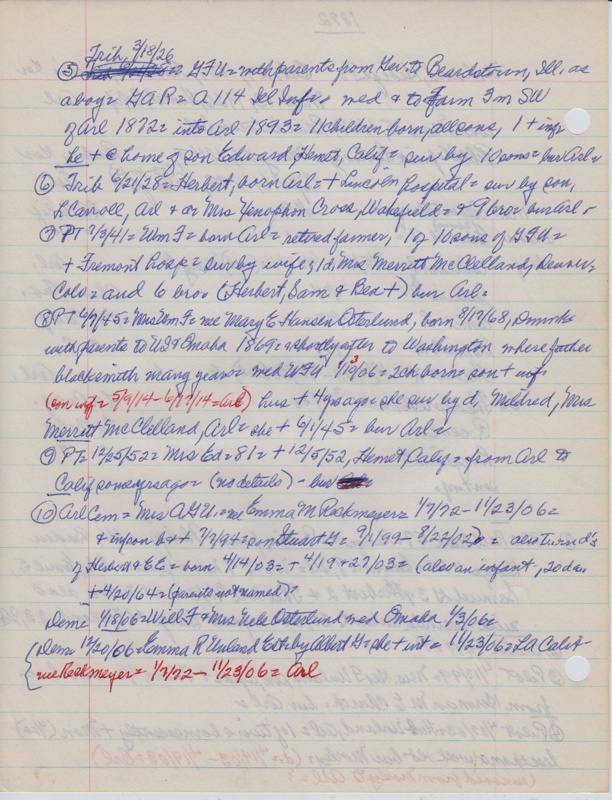 Trib 3/18/26
⑤ G.F.U = with parents from Ger. to Beardstown, Ill. as
above = GAR = A 114 Ill Inf = med & to Farm 3 m SW
of Arl 1872 = into Arl 1893 = 11 children born, all sons, 1 + inf
he + @ home of son Edward, Hemet, Calif = sur by 10 sons = bur Arl =
⑥ Trib 6/21/28 = Herbert, born Arl = + Lincoln hospital = sur by son,
L Carroll, Arl & da Mrs Xenophon Cross, Wakefield = & 9 bro = bur Arl =
⑦ PT 2/3/41 = Wm F = born Arl = retired farmer, 1 of 10 sons of G.F.U =
+ Fremont Hosp = sur by wife; 1 d, Mrs Merritt McClelland, Denver =
Colo = and 6 bro (Herbert, Sam & Ben +) bur Arl =
⑧ PT 6/7/45 = Mrs Wm F = nee Mary E Hansen Osterlund, born 8/17/68, Denmark
with parents to US & Omaha 1869 = shortly after to Washington where father
blacksmith many years = med WFU 1/3/06 = 2 ch born = son + inf
(son inf = 5/9/14 - 6/17/14 = Arl) hus + 4 yrs ago = she sur by d, Mildred, Mrs
Merritt McClelland, Arl = she + 6/1/45 = bur Arl =
⑨ PT = 12/25/52 = Mrs Ed = 81 = + 12/5/52, Hemet Calif = from Arl to
Calif some yrs ago = (no details) - bur
⑩ Arl Cem = Mrs A G U = nee Emma M Rackmeyer = 1/7/72 - 11/23/06 =
& inf son b & + 7/7/94 = son Stuart G = 9/1/99 - 8/22/02 = also twin d's
of Herbert & E E = born 4/14/03 = + 4/19 & 27/03 = (also an infant, 20 da
+ 4/20/64 = (parents not named)?
Dem: 1/18/06 = Will F & Mrs Nele Osterlund med Omaha 1/3/06 =
Dem 12/20/06 = Emma R Unland Est by Albert G = she + int = 11/23/06 = LA Calif =
nee Rackmeyer = 1/7/72 - 11/23/06 = Arl